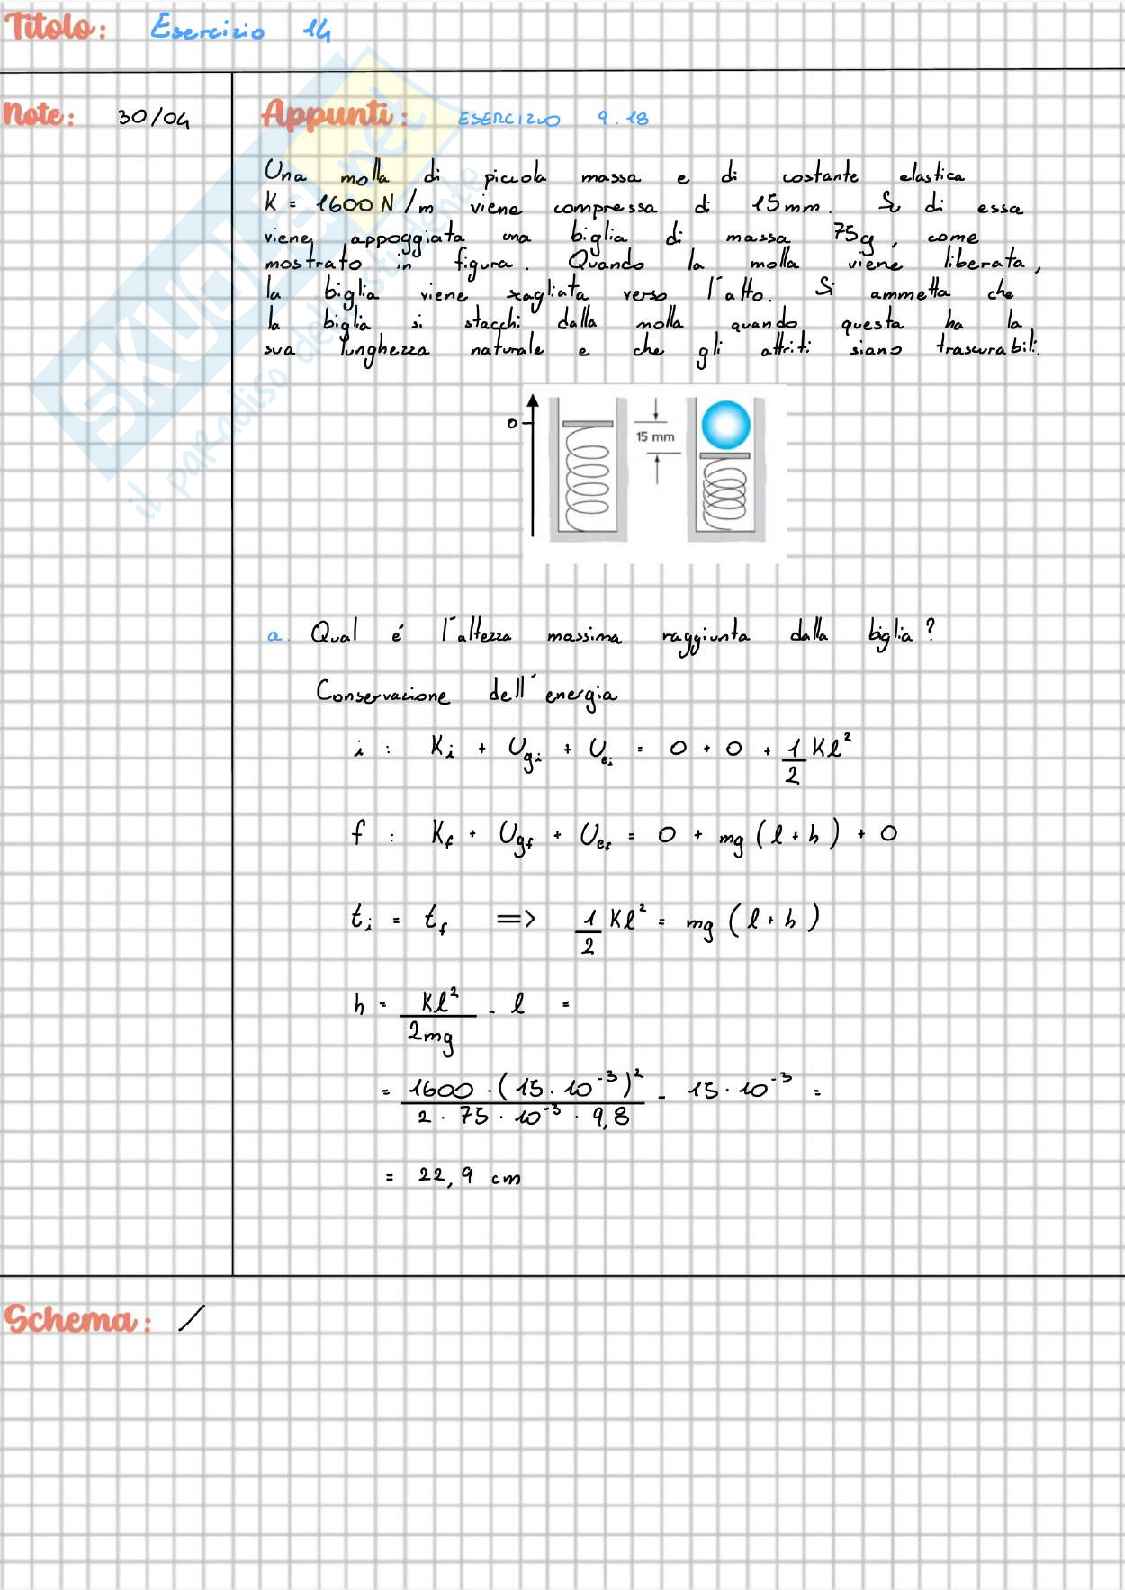 Titolo: Esercizio 14
Note: 30/04
Appunti: ESERCIZIO 9.18
Una molla di piccola massa e di costante elastica
K = 1600 N/m viene compressa di 15 mm. Su di essa
viene appoggiata una biglia di massa 75g, come
mostrato in figura. Quando la molla viene liberata,
la biglia viene scagliata verso l'alto. Si ammetta che
la biglia si stacchi dalla molla quando questa ha la
sua lunghezza naturale e che gli attriti siano trascurabili.
0
15 mm
a. Qual é l'altezza massima raggiunta dalla biglia?
Conservazione dell'energia
i : Ki + Ugi + Uei = 0 + 0 + 1/2 Kl²
f : Kf + Ugf + Uef = 0 + mg (l + h) + 0
ti = tf => 1/2 Kl² = mg (l + h)
h = Kl²/2mg - l =
= 1600 · (15 · 10⁻³)² / 2 · 75 · 10⁻³ · 9,8 - 15 · 10⁻³ =
= 22,9 cm
Schema: /
SKUOLA.net
il paradiso dello studente